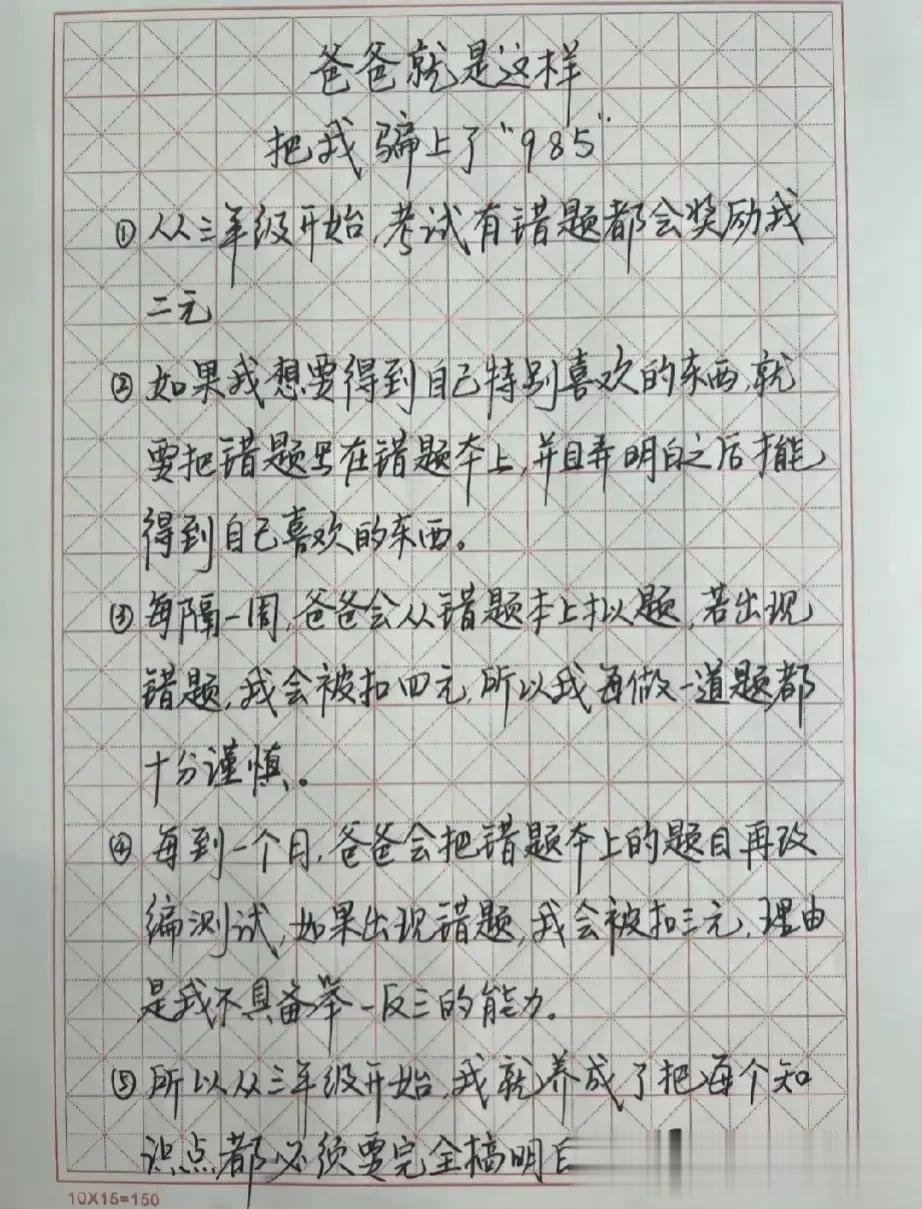 爸爸就是这样
把我骗上了"985"
①从三年级开始,考试有错题都会奖励我
二元
②如果我想要得到自己特别喜欢的东西,就
要把错题写在错题本上,并且弄明白之后才能
得到自己喜欢的东西。
③每隔一周,爸爸会从错题本上拟题,若出现
错题,我会被扣四元,所以我每做一道题都
十分谨慎。
④每到一个月,爸爸会把错题本上的题目再改
编测试,如果出现错题,我会被扣三元,理由
是我不具备举一反三的能力。
⑤所以从三年级开始,我就养成了把每个知
识点都必须要完全搞明白
10X15=150